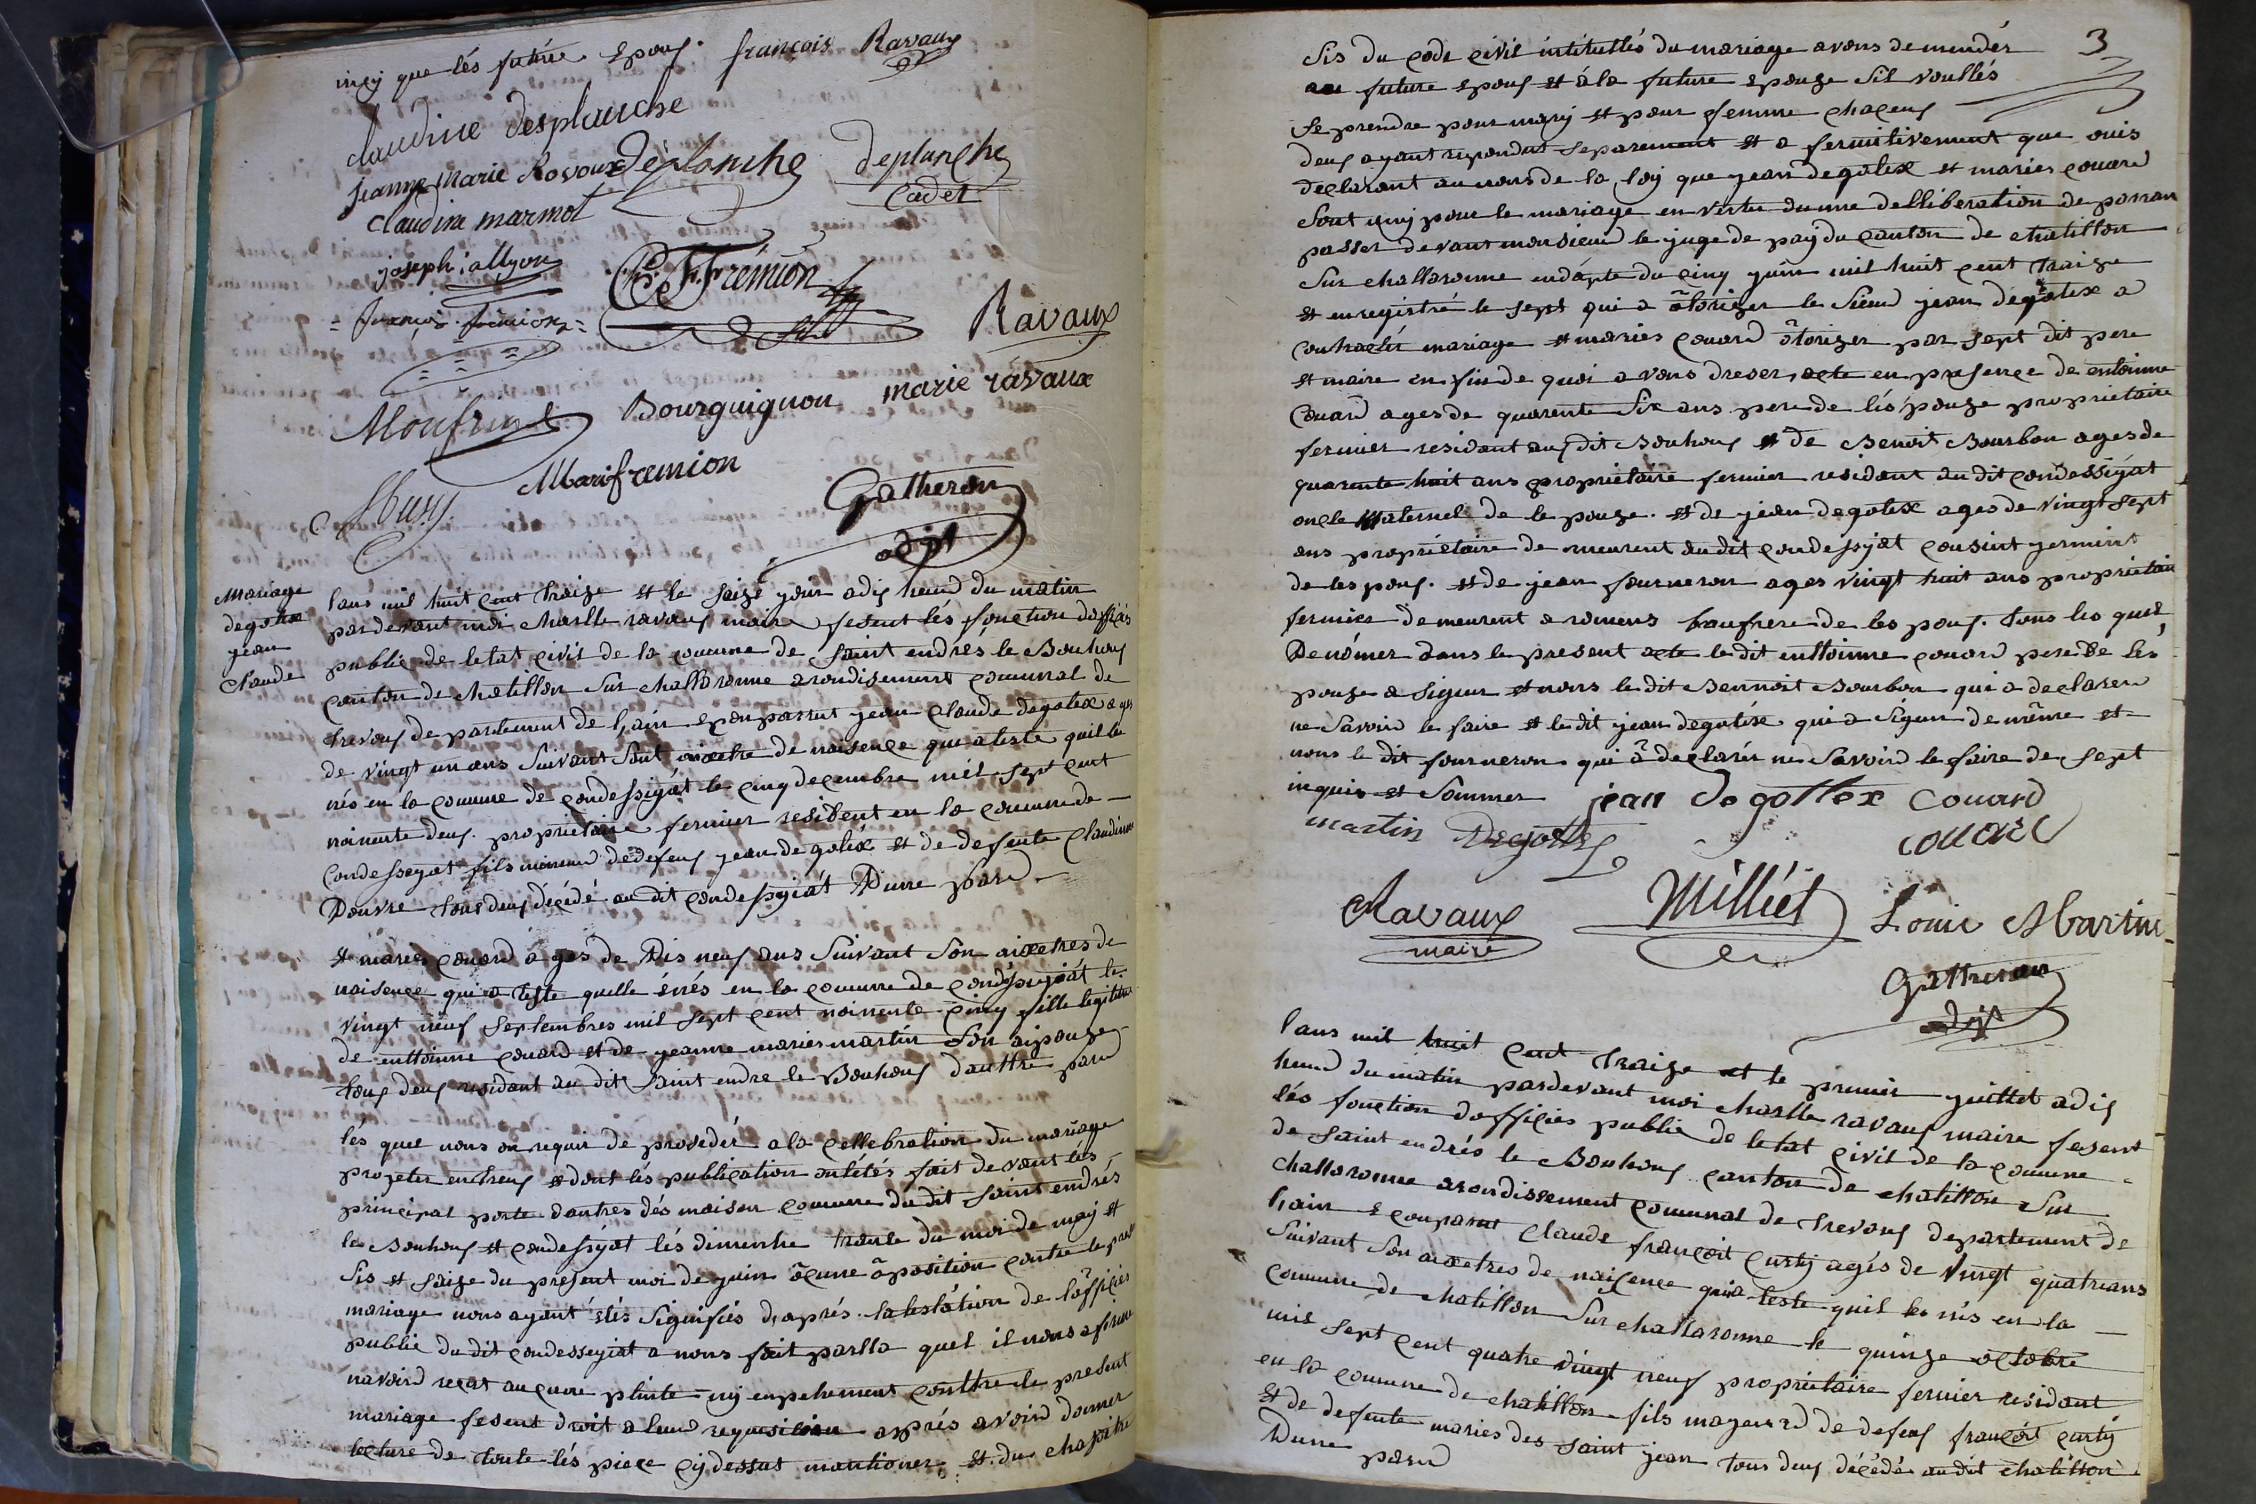 incy que lés future epouf. françois Ravaux
claudine desplanche
jeanne marie Rovoux déplanche deplanche
cadet
claudine marmot
joseph allyon CF. Frémion
françois frémion Ravaux
Monfrinet Bourguignon marie ravaux
Mari fremion
Gatheron
adjt
Mariage
degotex
jean
Claude
lans mil huit cent traize et le saize juin adix heurd du matin
pardevant moi charlle ravouf maire fesent lés fonction dofficiés
public de letat civil de la comune de saint endrés le Bouhouf
canton de chatillon sur challaronne arondisement comunal de
trevouf departement de lain econparrut jean claude degotex agés
de vingt un ans suivant sont aixctre de naisence qui ateste quil le
nés en la comune de condessyat le cinq decembre mil sept cent
noinente deuf. proprietaire fermier resident en la comune de
Condesseyat fils mineurd dedefeuf jean degotéx et de defente claudine
Douvre tous deuf décédé au dit condessyiát Dune pard
et mariés couard agés de Dis neuf ans suivant son aixctres de
naisence qui ateste quelle énés en la comune de condessyiát le
vingt neuf septembres mil sept cent noinente cinq fille legitime
de enttoinne couard et de jeanne mariés martin son aipouze
tous deuf residant au dit saint endre le Bouhouf dauttre pard
lés quel nous on requir de procedér a la cellebration du mariage
projeter entreuf et dont lés publication ontétés fait devant lés
principal porte dantres dés maison comune du dit saint endrés
le Bouhouf et condessyat lés dimenche trante du moi de may et
sis et saize du present moi de juin ôcune ôposition contre le prest
mariage nous ayant étés signifiés daprés latestátion de lofficiés
public du dit condesseyiat a nous fait parlla quel il nous afirme
navoird recut aucune plinte ny enpehement conttre le present
mariage fesent droit a leurd requisision apprés avoird donner
lecture de toute lés piece cy dessus mantioner et du chapitre
3
sis du code civil intitullés du mariage avons demendér
au future epouf et á la future epouze sil voullés
se prendre pour mary et pour femme chaceuf
deuf ayant repondut separement et a fermitivement que ouis
declarant au nons de la loy que jean degotex et mariés couard
sont uny pour le mariage en vertu dunne delliberation de parran
passer devant monsieurd le juge de pay du canton de chatillon
sur challaronne endápte du cinq juin mil huit cent traize
et enregistré le sept qui a ôtorizer le sieurd jean degotex a
contractér mariage et mariés couard ôtorizer par sept dit pere
et maire en fin de quoi avons dreser acte en presence de entoinne
Couard agés de quarente six ans pere de lés pouze proprietaire
fermier residant auf dit Bouhouf et de Benoit Bourbon agés de
quarente huit ans proprietaire fermier residant au dit condessiyat
oncle Maternel de le pouze. et de jean degotex agés de vingt sept
ans proprietaire de meurent au dit condessyat cousint germint
de les pouf. et de jean fourneron agés vingt huit ans proprietair
fermier demeurent a romens beaufrere de les pouf. tous lés quel
Denómer dans le present acte le dit enttoinne couard pere de lés
pouze a signer et nons le dit Bennoit Bourbon qui a declarerd
ne savoird le faire et le dit jean degotéx qui a signer de même et
nons le dit fourneron qui â declarér ne savoird le faire de sept
inquis et sommer jean degottex Couard
martin Degottex couard
Ravaux Milliét Louis Martin
maire
Gatheron
adjt
lans mil huit cent traize et le premier juillet adix
heurd du matin pardevant moi charlle ravauf maire fesent
lés fonction dofficiés public de letat civil de la comune
de saint endrés le Bouhouf canton de chatillon sur
challaronne arondissement comunal de trevouf departement de
lain econparut claude françoit curty agés de vingt quatreans
suivant son aixctres de naicence qui a teste quil les nés en la
comune de chatillon sur challaronne le quinze octobre
mil sept cent quatre vingt neuf proprietaire fermier residant
en la comune de chatillon fils mageurd de defeuf françoit curty
et de defente mariés des saint jean tous deuf décédé au dit chatillon
Dune pard